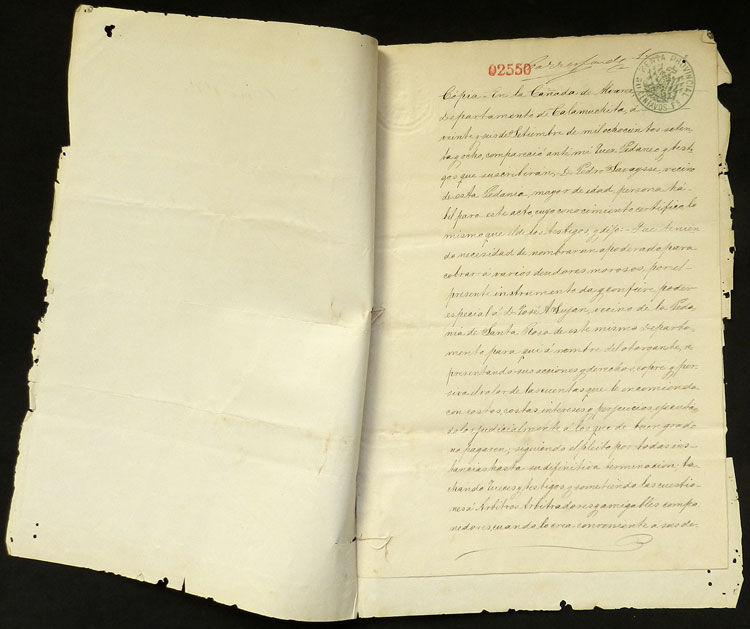 02550
RENTA PROVINCIAL
Copia - En la Cañada de Alvarez
Departamento de Calamuchita, á
veinte y seis de Setiembre de mil ochocientos seten
ta y ocho, compareció anti mi Juez Pedaneo y testi
gos que suscribirán, D. Pedro Savaysse, vecino
de esta Pedanía, mayor de edad, persona há
bil para este acto cuyo conocimiento certifico lo
mismo que el de los testigos, y dijo: - Que tenien
do necesidad de nombrar un apoderado para
cobrar á varios deudores morosos, por el -
presente instrumento da y confiere poder
especial á D. José A. Lujan, vecino de la Peda
nia de Santa Rosa de este mismo Departa
mento para que á nombre del otorgante, re
presentando sus acciones y derechos, cobre y per
siva el valor de las cuentas que le encomienda
con costos, costas, intereses y perjuicios, ejecutan
dolos judicialmente á los que de buen grado
no pagaren, siguiendo el pleito por todas ins
tancias hasta su definitiva terminacion, ta
chando Jueces y testigos y sometiendo las cuestio
nes á Arbitros Arbitradores y amigables compo
nedores, cuando lo crea conveniente á sus de